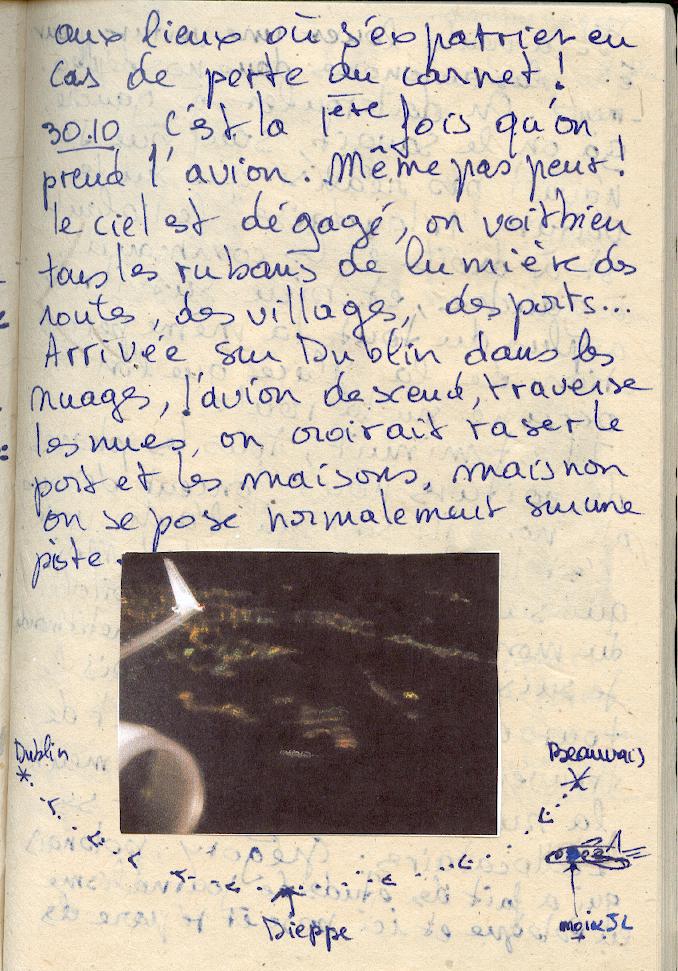 aux lieux où s'expatrier en
cas de perte du carnet !
30.10 C'est la 1ère fois qu'on
prend l'avion. Même pas peur !
le ciel est dégagé, on voit bien
tous les rubans de lumière des
routes, des villages, des ports...
Arrivée sur Dublin dans les
nuages, l'avion descend, traverse
les nues, on croirait raser le
port et les maisons, mais non
on se pose normalement sur une
piste.
Dublin
Beauvais
Dieppe